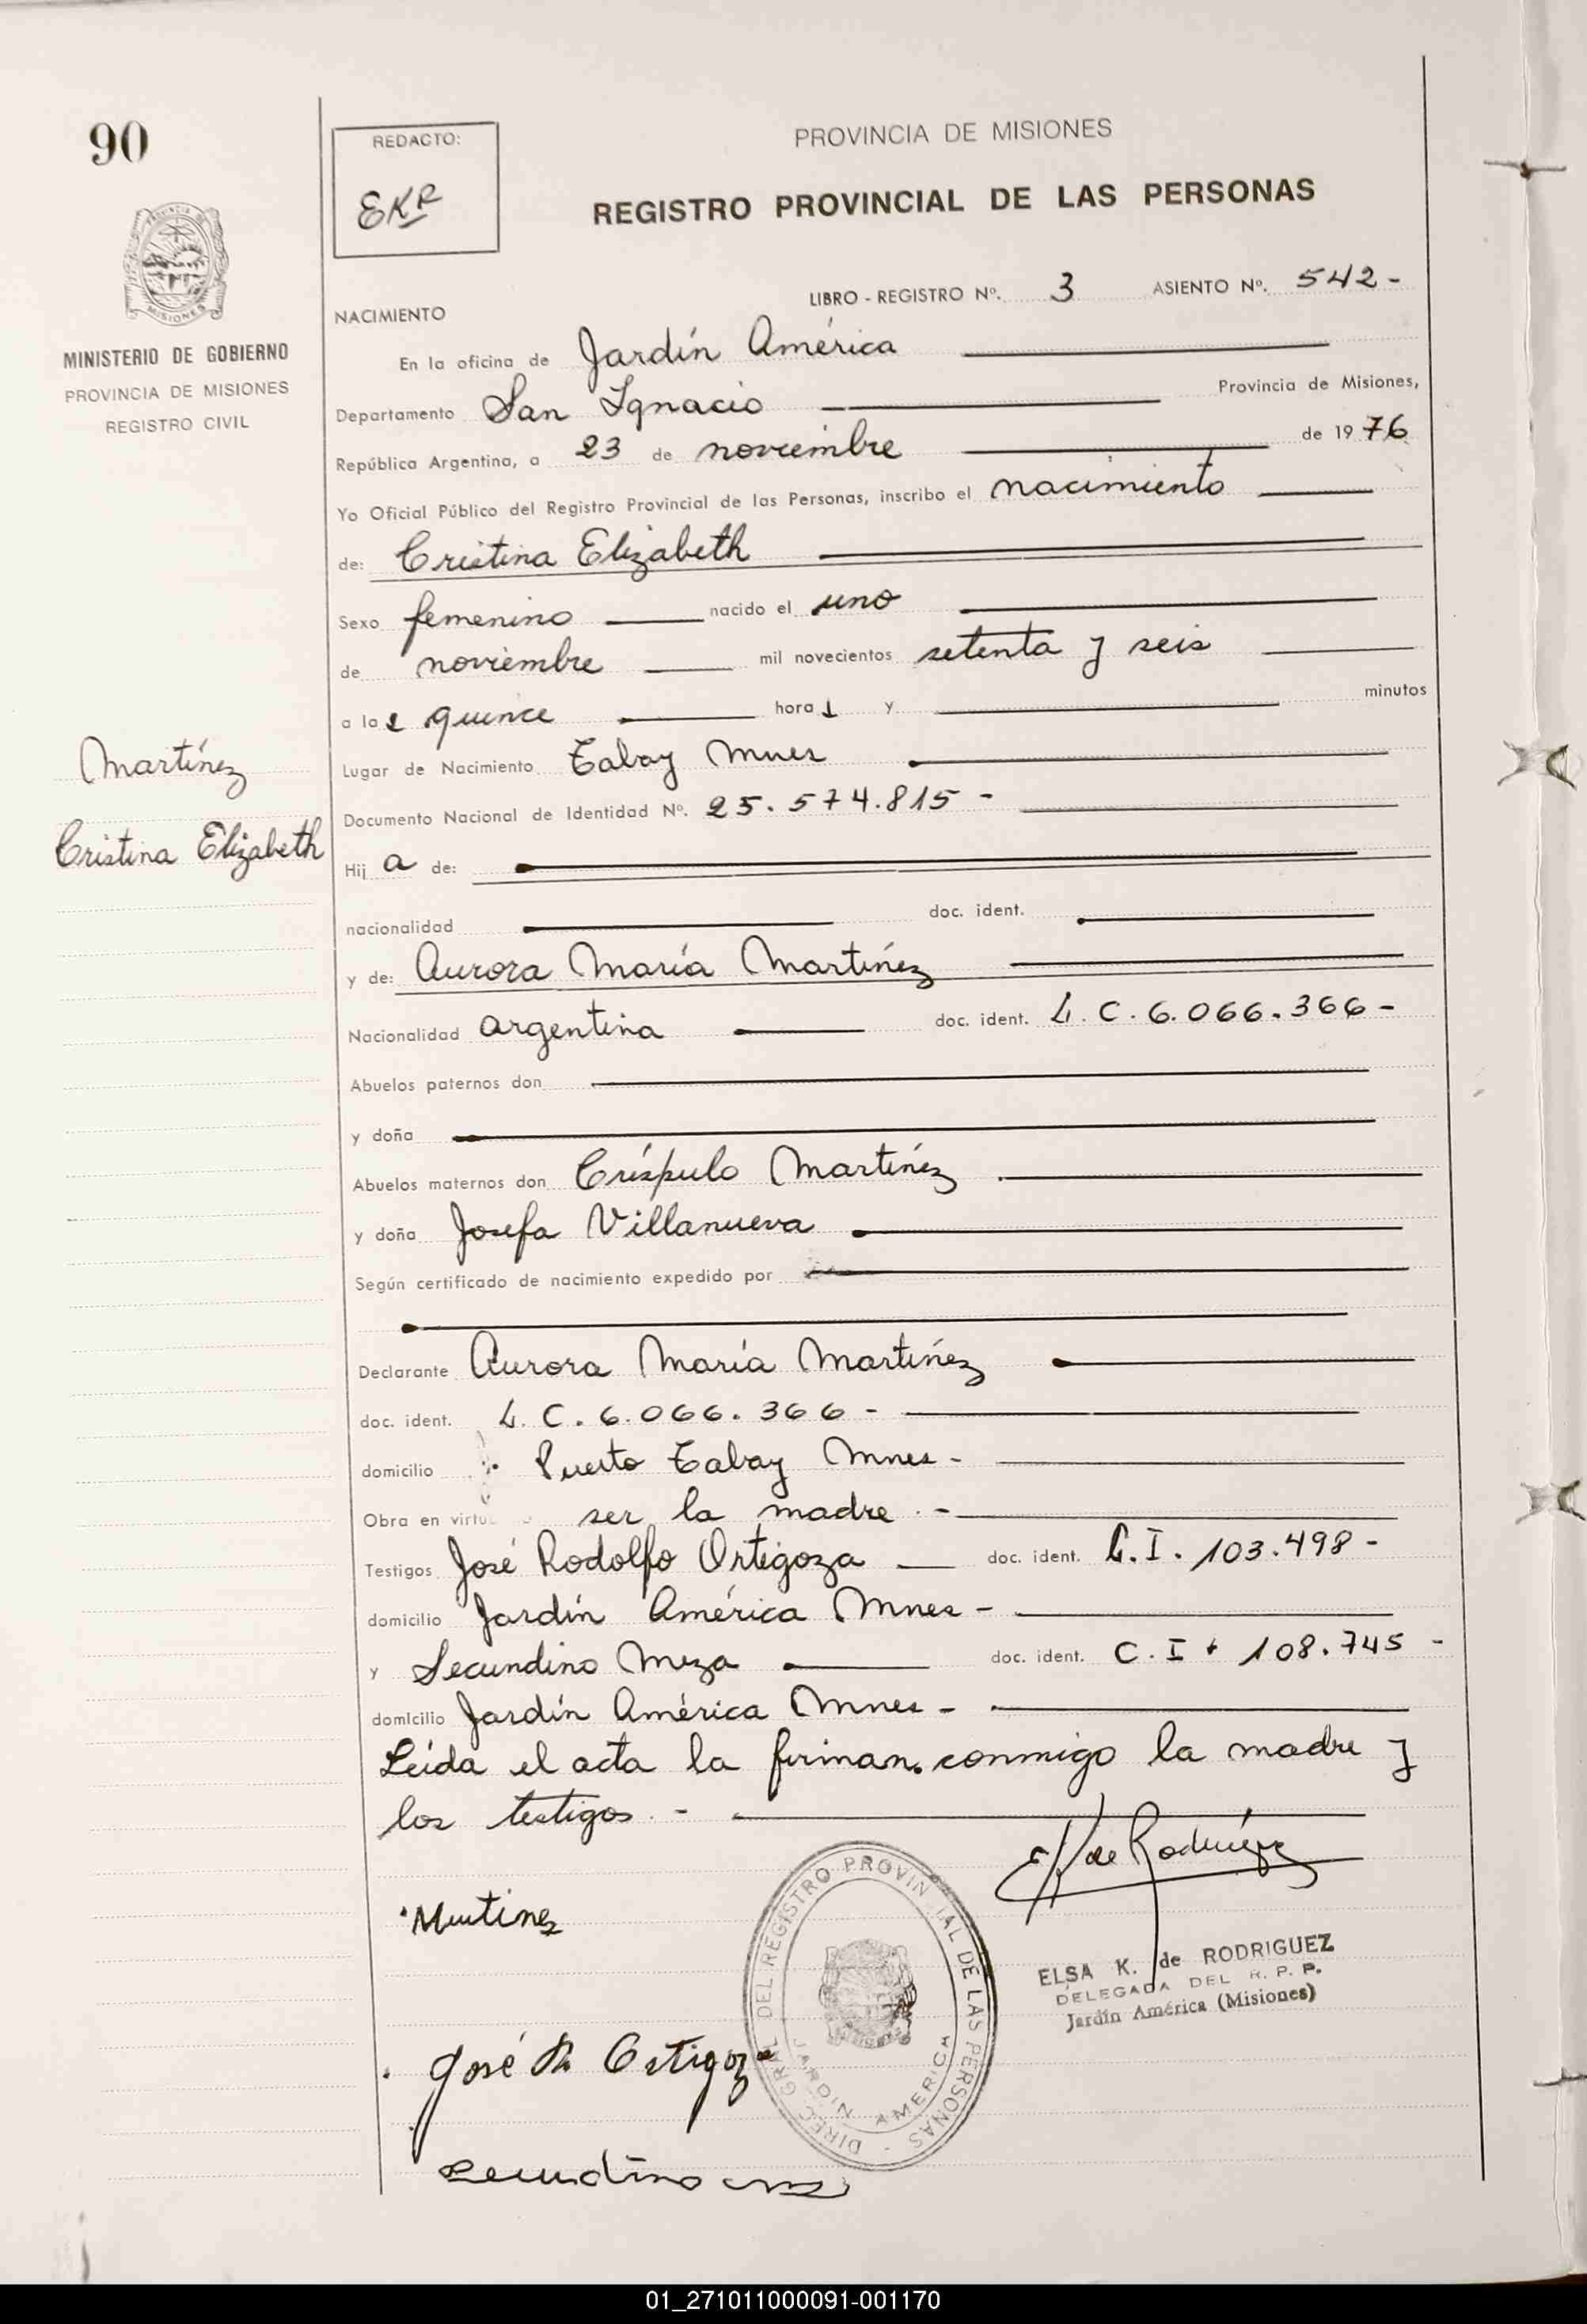 90
PROVINCIA DE MISIONES
MINISTERIO DE GOBIERNO
PROVINCIA DE MISIONES
REGISTRO CIVIL
Martínez
Cristina Elizabeth
REDACTO:
EKR
PROVINCIA DE MISIONES
REGISTRO PROVINCIAL DE LAS PERSONAS
LIBRO - REGISTRO Nº. 3 ASIENTO Nº. 542-
NACIMIENTO
En la oficina de Jardín América
Departamento San Ignacio Provincia de Misiones,
República Argentina, a 23 de noviembre de 1976
Yo Oficial Público del Registro Provincial de las Personas, inscribo el nacimiento
de: Cristina Elizabeth
Sexo femenino nacido el uno
de noviembre mil novecientos setenta y seis
a las quince horas y minutos
Lugar de Nacimiento Tabay Mnes
Documento Nacional de Identidad Nº. 25.574.815-
Hija de:
nacionalidad doc. ident.
y de: Aurora María Martínez
Nacionalidad argentina doc. ident. L.C. 6.066.366-
Abuelos paternos don
y doña
Abuelos maternos don Críspulo Martínez
y doña Josefa Villanueva
Según certificado de nacimiento expedido por
Declarante Aurora María Martínez
doc. ident. L.C. 6.066.366-
domicilio Puerto Tabay Mnes-
Obra en virtu ser la madre.-
Testigos José Rodolfo Ortigoza doc. ident. C.I. 103.498-
domicilio Jardín América Mnes-
y Secundino Meza doc. ident. C.I. 108.745-
domicilio Jardín América Mnes-
Leída el acta la firman conmigo la madre y
los testigos.-
EK de Rodríguez
Martinez
ELSA K. de RODRIGUEZ
DELEGADA DEL R. P. P.
Jardín América (Misiones)
DIREC GRAL DEL REGISTRO PROVINCIAL DE LAS PERSONAS -
JARDIN AMERICA
José R. Ortigoza
Secundino
01_271011000091-001170